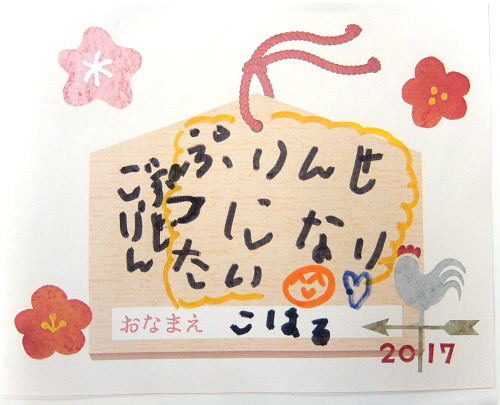 ぷりんせ
つになり
たい
おなまえ こはる
2017